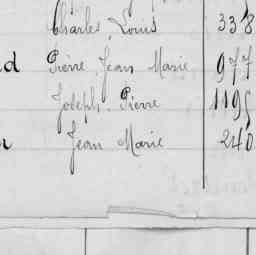 Charles Louis 338
d Pierre Jean Marie 977
Joseph Pierre 1195
Jean Marie 240